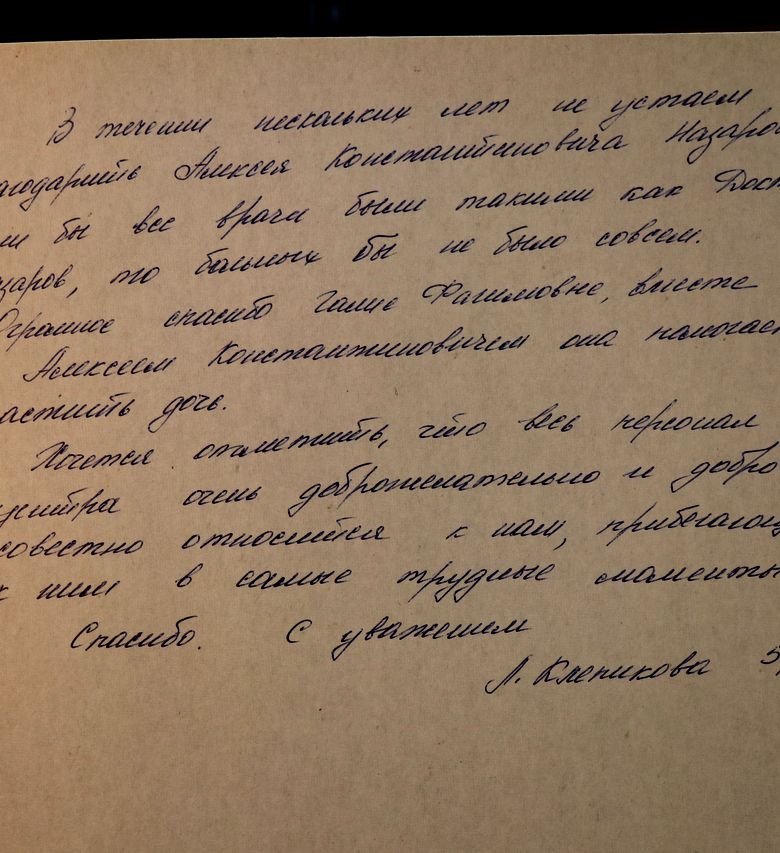 В течении нескольких лет не устаем
агодарить Алексея Константиновича Назаро
ли бы все врачи были такими как Докт
заров, то больных бы не было совсем.
Огромное спасибо Галие Фагимовне, вместе
Алексеем Константиновичем она помогает
астить дочь.
Хочется отметить, что весь персонал
центра очень доброжелательно и добро
совестно относится к нам, прибегающ
к ним в самые трудные моменты.
Спасибо. С уважением
Л. Клепикова 5